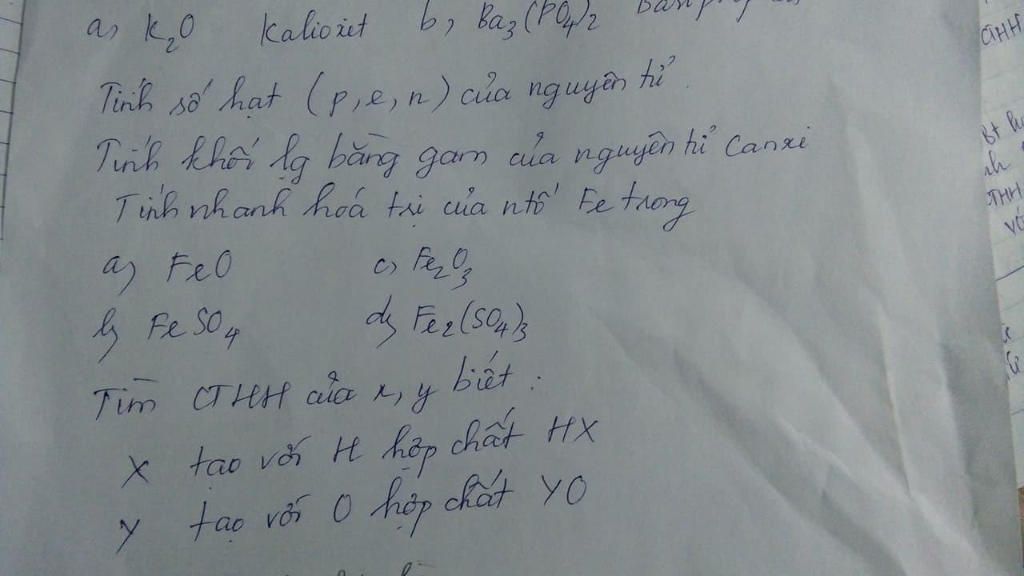 a, K₂O Kalioxit b, Ba₃(PO₄)₂
Tính số hạt (p,e,n) của nguyên tử.
Tính khối lg bằng gam của nguyên tử Canxi
Tính nhanh hoá trị của ntố Fe trong
a, FeO c, Fe₂O₃
b, FeSO₄ d, Fe₂(SO₄)₃
Tìm CTHH của x, y biết :
X tạo với H hợp chất HX
Y tạo với O hợp chất YO
CTHH
Bt
CTHH